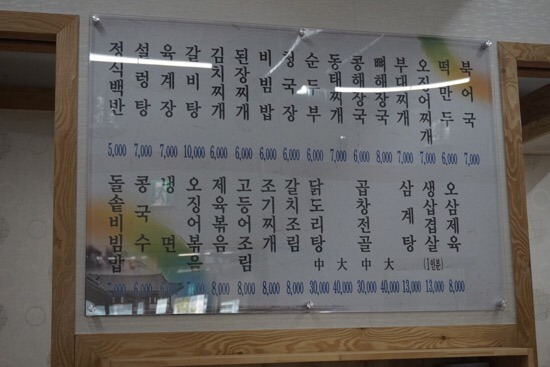 정식백반
설렁탕
육계장
갈비탕
김치찌개
된장찌개
비빔밥
청국장
순두부
동태찌개
콩해장국
뼈해장국
부대찌개
오징어찌개
떡만두
북어국
5,000 7,000 7,000 10,000 6,000 6,000 6,000 6,000 6,000 6,000 6,000 8,000 7,000 7,000 6,000 7,000
돌솥비빔밥
콩국수
냉면
오징어볶음
제육볶음
고등어조림
조기찌개
갈치조림
닭도리탕
中 大
곱창전골
中 大
삼계탕
생삼겹살
(1인분)
오삼제육
8,000 8,000 8,000 8,000 30,000 40,000 30,000 40,000 13,000 13,000 8,000